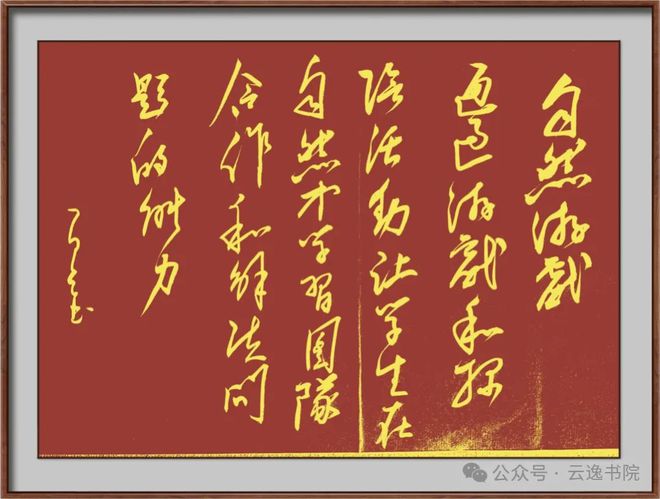 自然游戲
通过游戲和探
险活動让学生在
自然中学習團隊
合作和解决问
题的能力
公众号 · 云逸书院